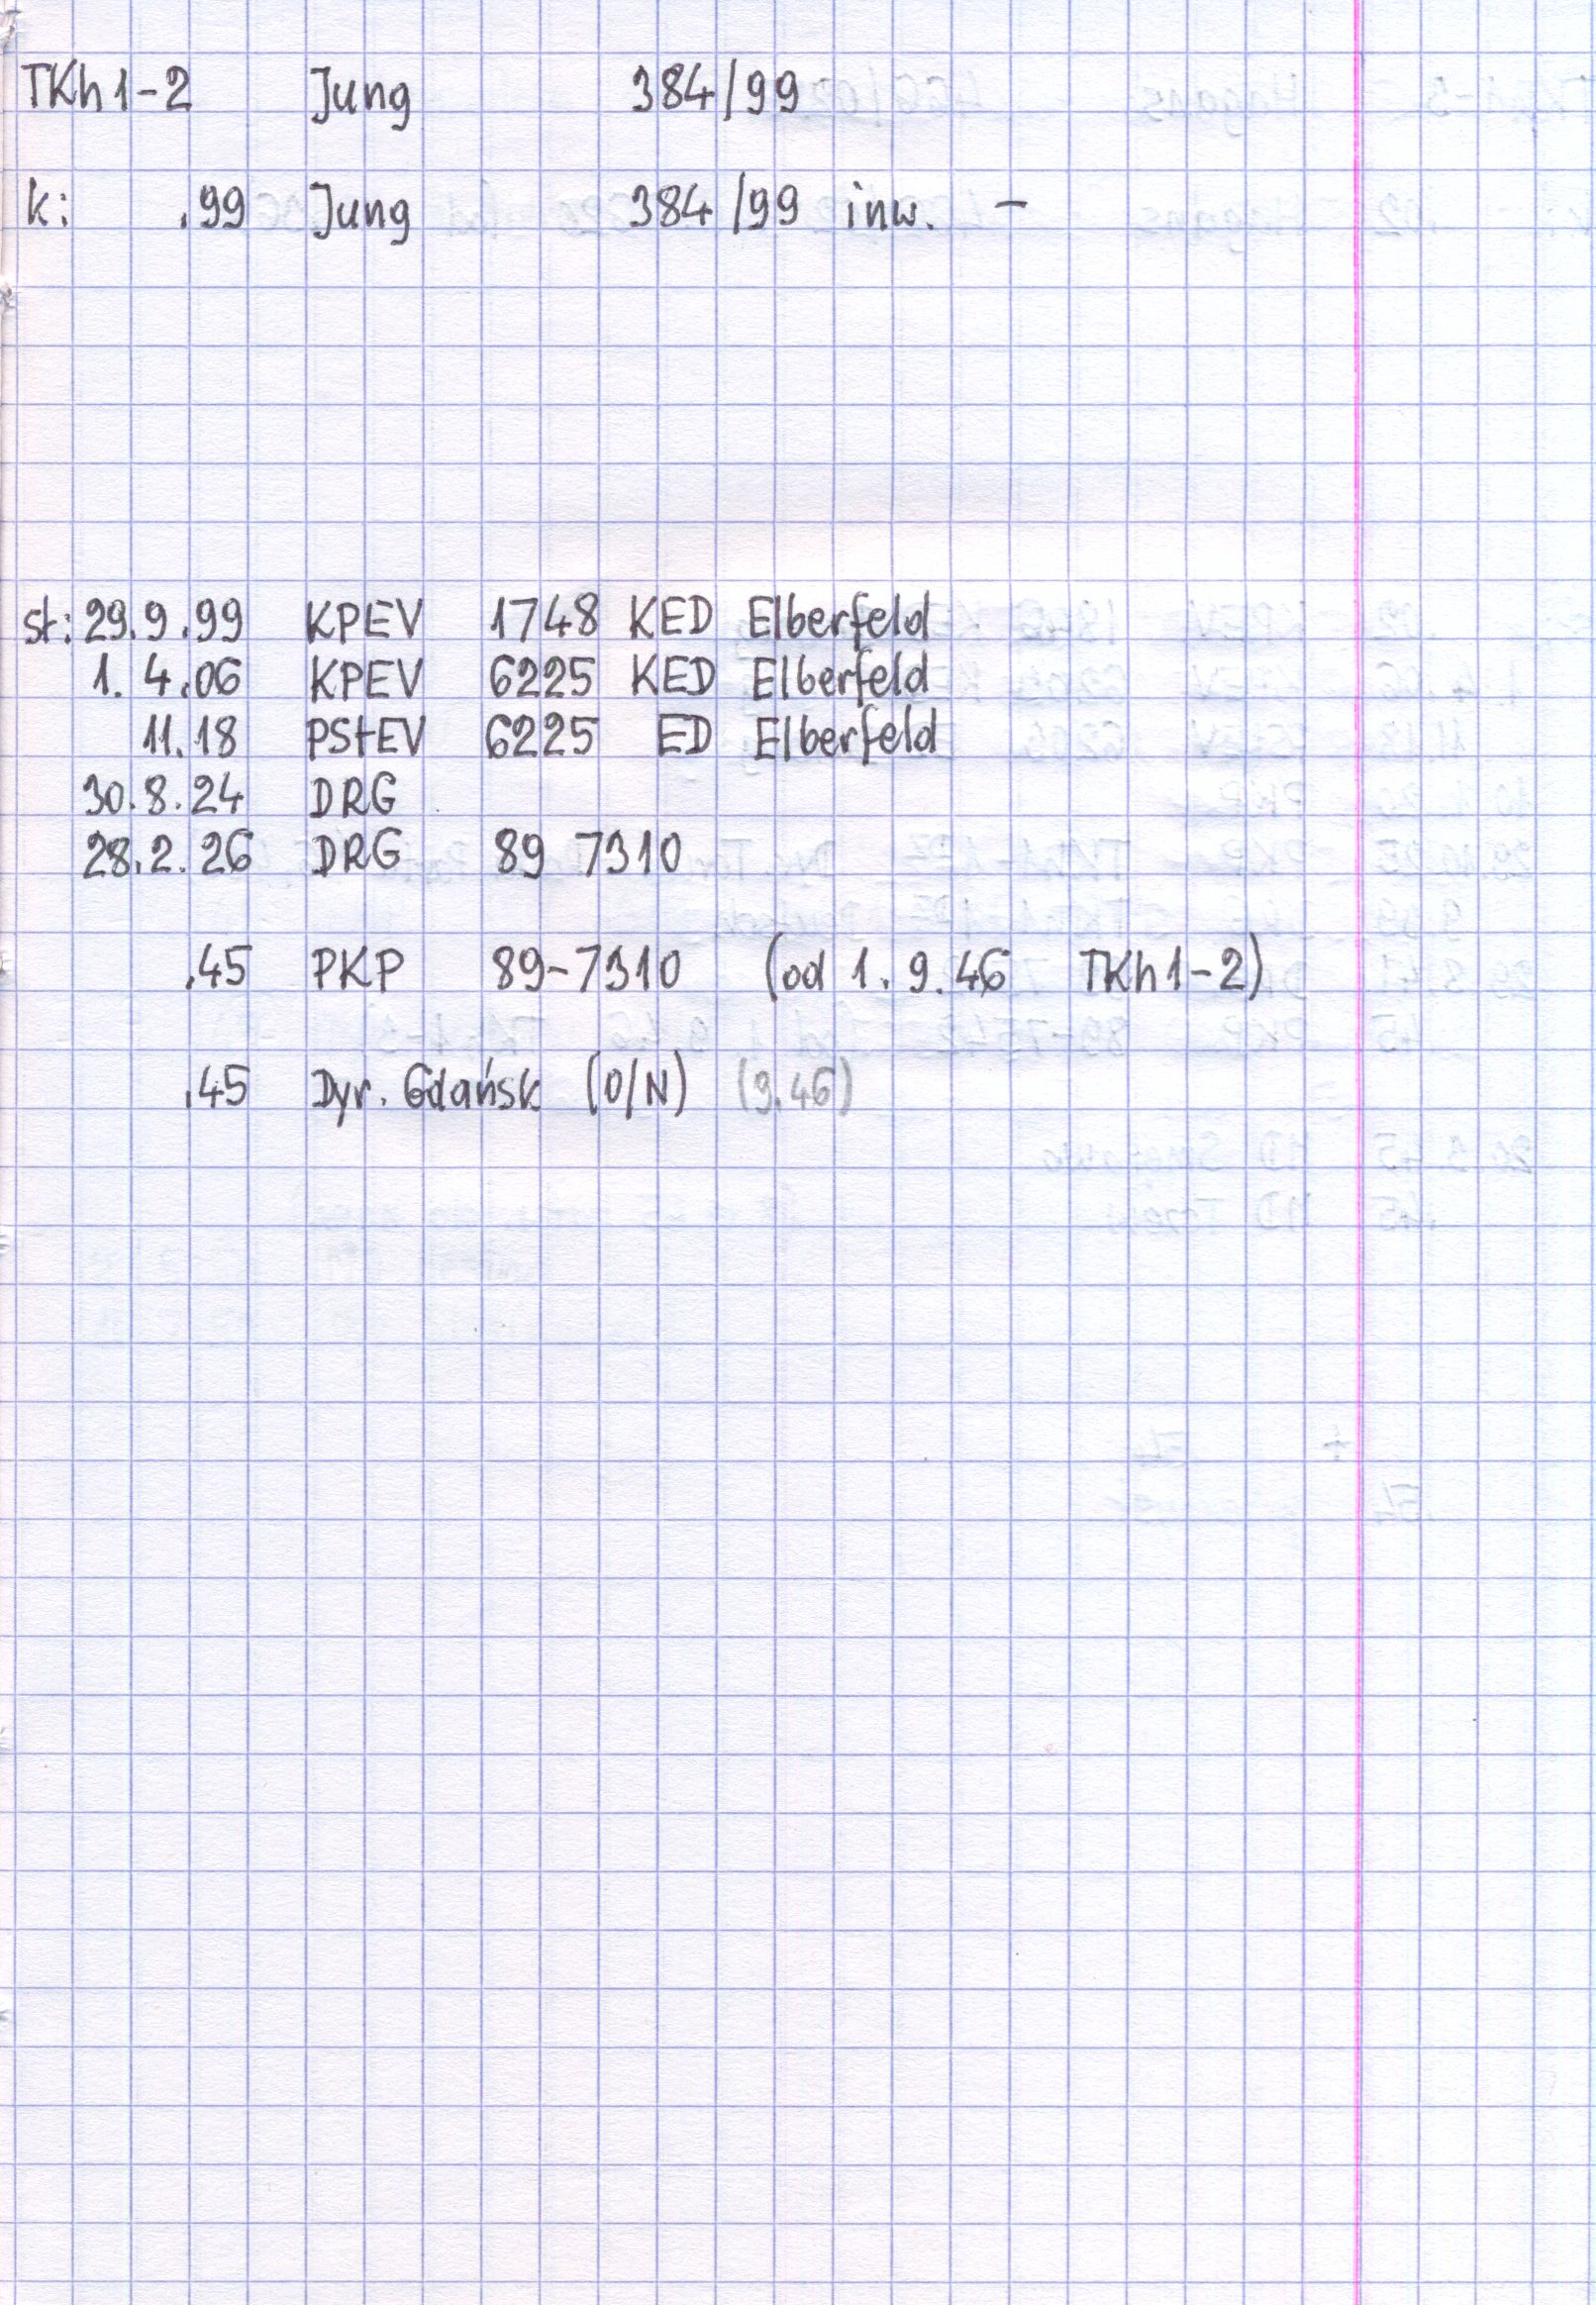 TKh1-2 Jung 384/99
k: .99 Jung 384/99 inw. -
st: 29.9.99 KPEV 1748 KED Elberfeld
1.4.06 KPEV 6225 KED Elberfeld
11.18 PStEV 6225 ED Elberfeld
30.8.24 DRG
28.2.26 DRG 89 7310
.45 PKP 89-7310 (od 1.9.46 TKh1-2)
.45 Dyr. Gdańsk (O/N) (9.46)